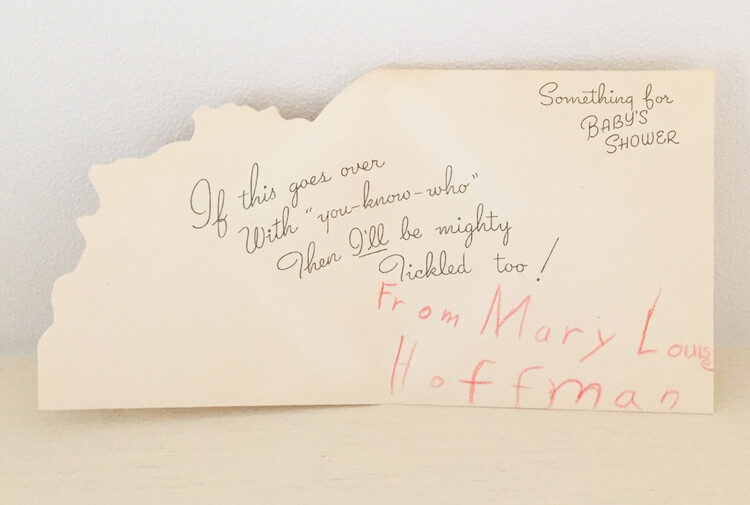 Something for
BABY'S
SHOWER
If this goes over
With "you-know-who"
Then I'll be mighty
Tickled too!
From Mary Louise
Hoffman